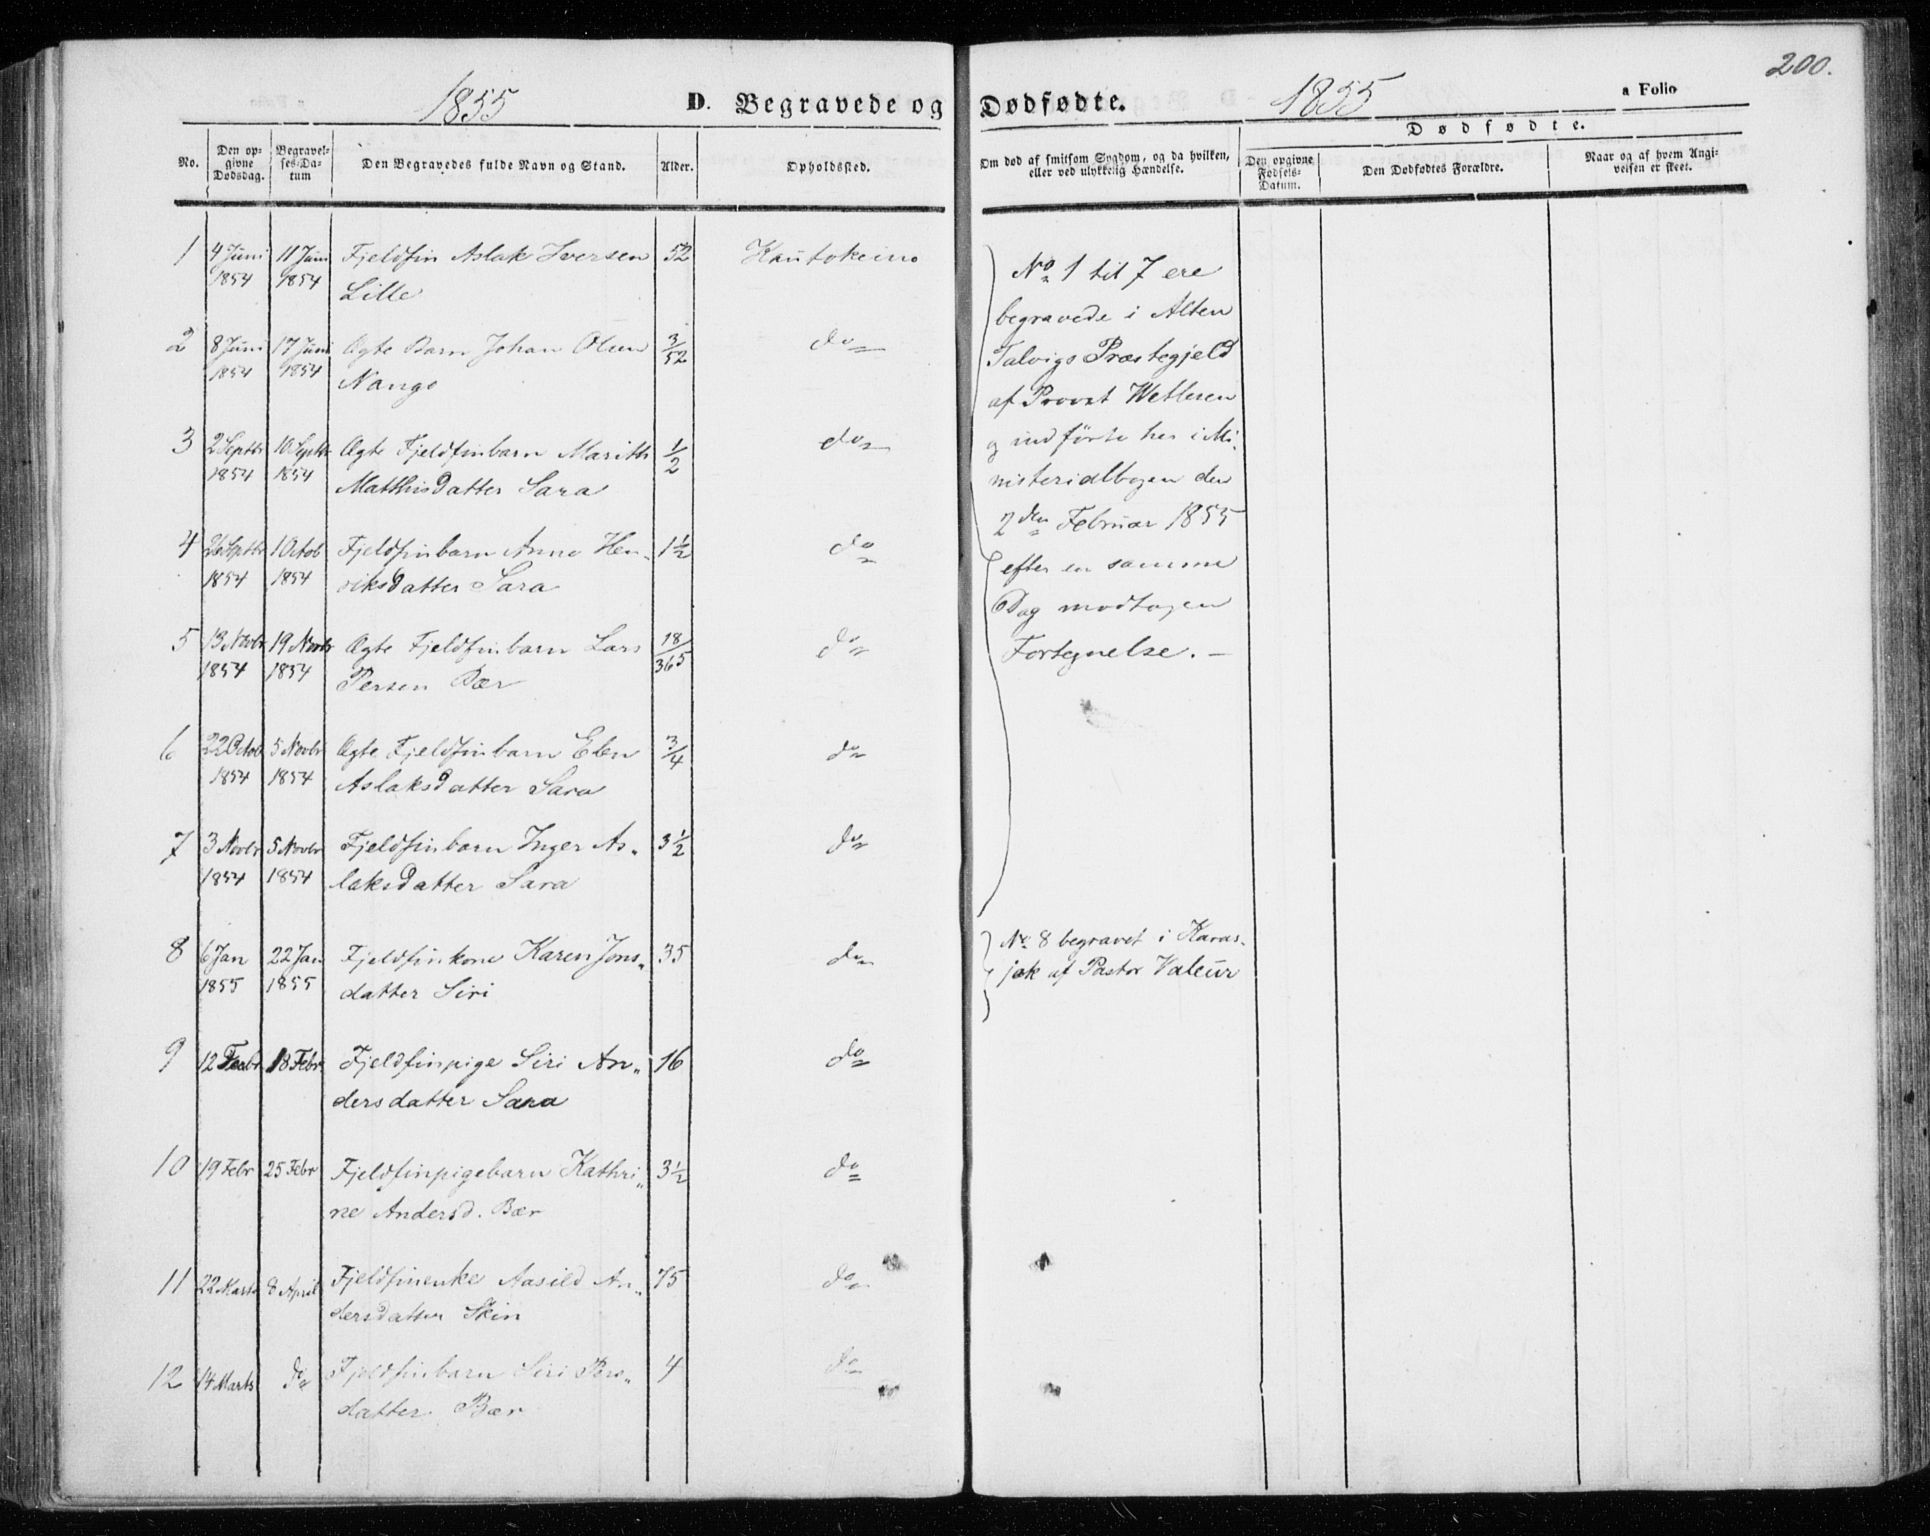 200.
1855
D. Begravede og Dødfødte.
1855
a Folio
No.
Den op-
givne
Dødsdag.
Begravel-
ses-Da-
tum
Den Begravedes fulde Navn og Stand.
Alder.
Opholdssted.
Om død af smitsom Sygdom, og da hvilken,
eller ved ulykkelig Hændelse.
Dødfødte.
Den opgivne
Fødsels-
Datum.
Den Dødfødtes Forældre.
Naar og af hvem Angi-
velsen er skeet.
1 4 Juni 11 Juni Fjeldfin Aslak Iversen 52 Kautokeino
1854 1854 Lille
2 8 Juni 17 Juni Ægte Barn Johan Olsen 3/52 do
1854 1854 Nango
3 2 Septbr 10 Septbr Ægte Fjeldfinbarn Marith 1/2 do
1854 1854 Matthisdatter Sara
4 Septbr 1 Octob Fjeldfinbarn Anne Hen- 1 1/2 do
1854 1854 riksdatter Sara
5 13 Novbr 19 Novbr Ægte Fjeldfinbarn Lars 18/365 do
1854 1854 Persen Bær
6 22 Octob 5 Novbr Ægte Fjeldfinbarn Elen 3/4 do
1854 1854 Aslaksdatter Sara
7 3 Novbr 5 Novbr Fjeldfinbarn Inger As- 3 1/2 do
1854 1854 laksdatter Sara
8 6 Jan 22 Jan Fjeldfinkone Karen Jons- 35 do
1855 1855 datter Siri
9 12 Febr 18 Febr Fjeldfinpige Siri An- 16 do
dersdatter Sara
10 19 Febr 25 Febr Fjeldfinpigebarn Kathri- 3 1/2 do
ne Andersd. Bær
11 22 Marts 8 April Fjeldfinenke Aasild An- 75 do
dersdatter Skin
12 14 Marts do Fjeldfinbarn Siri Pers- 4 do
datter Bær
No 1 til 7 ere
begravede i Alten
Talvigs Præstegjeld
af Provst Wetlesen
og indførte her i Mi-
nisterialbogen den
2den Februar 1855
efter en samme
Dag modtagen
Fortegnelse. -
No 8 begravet i Karas-
jok af Pastor Valeur